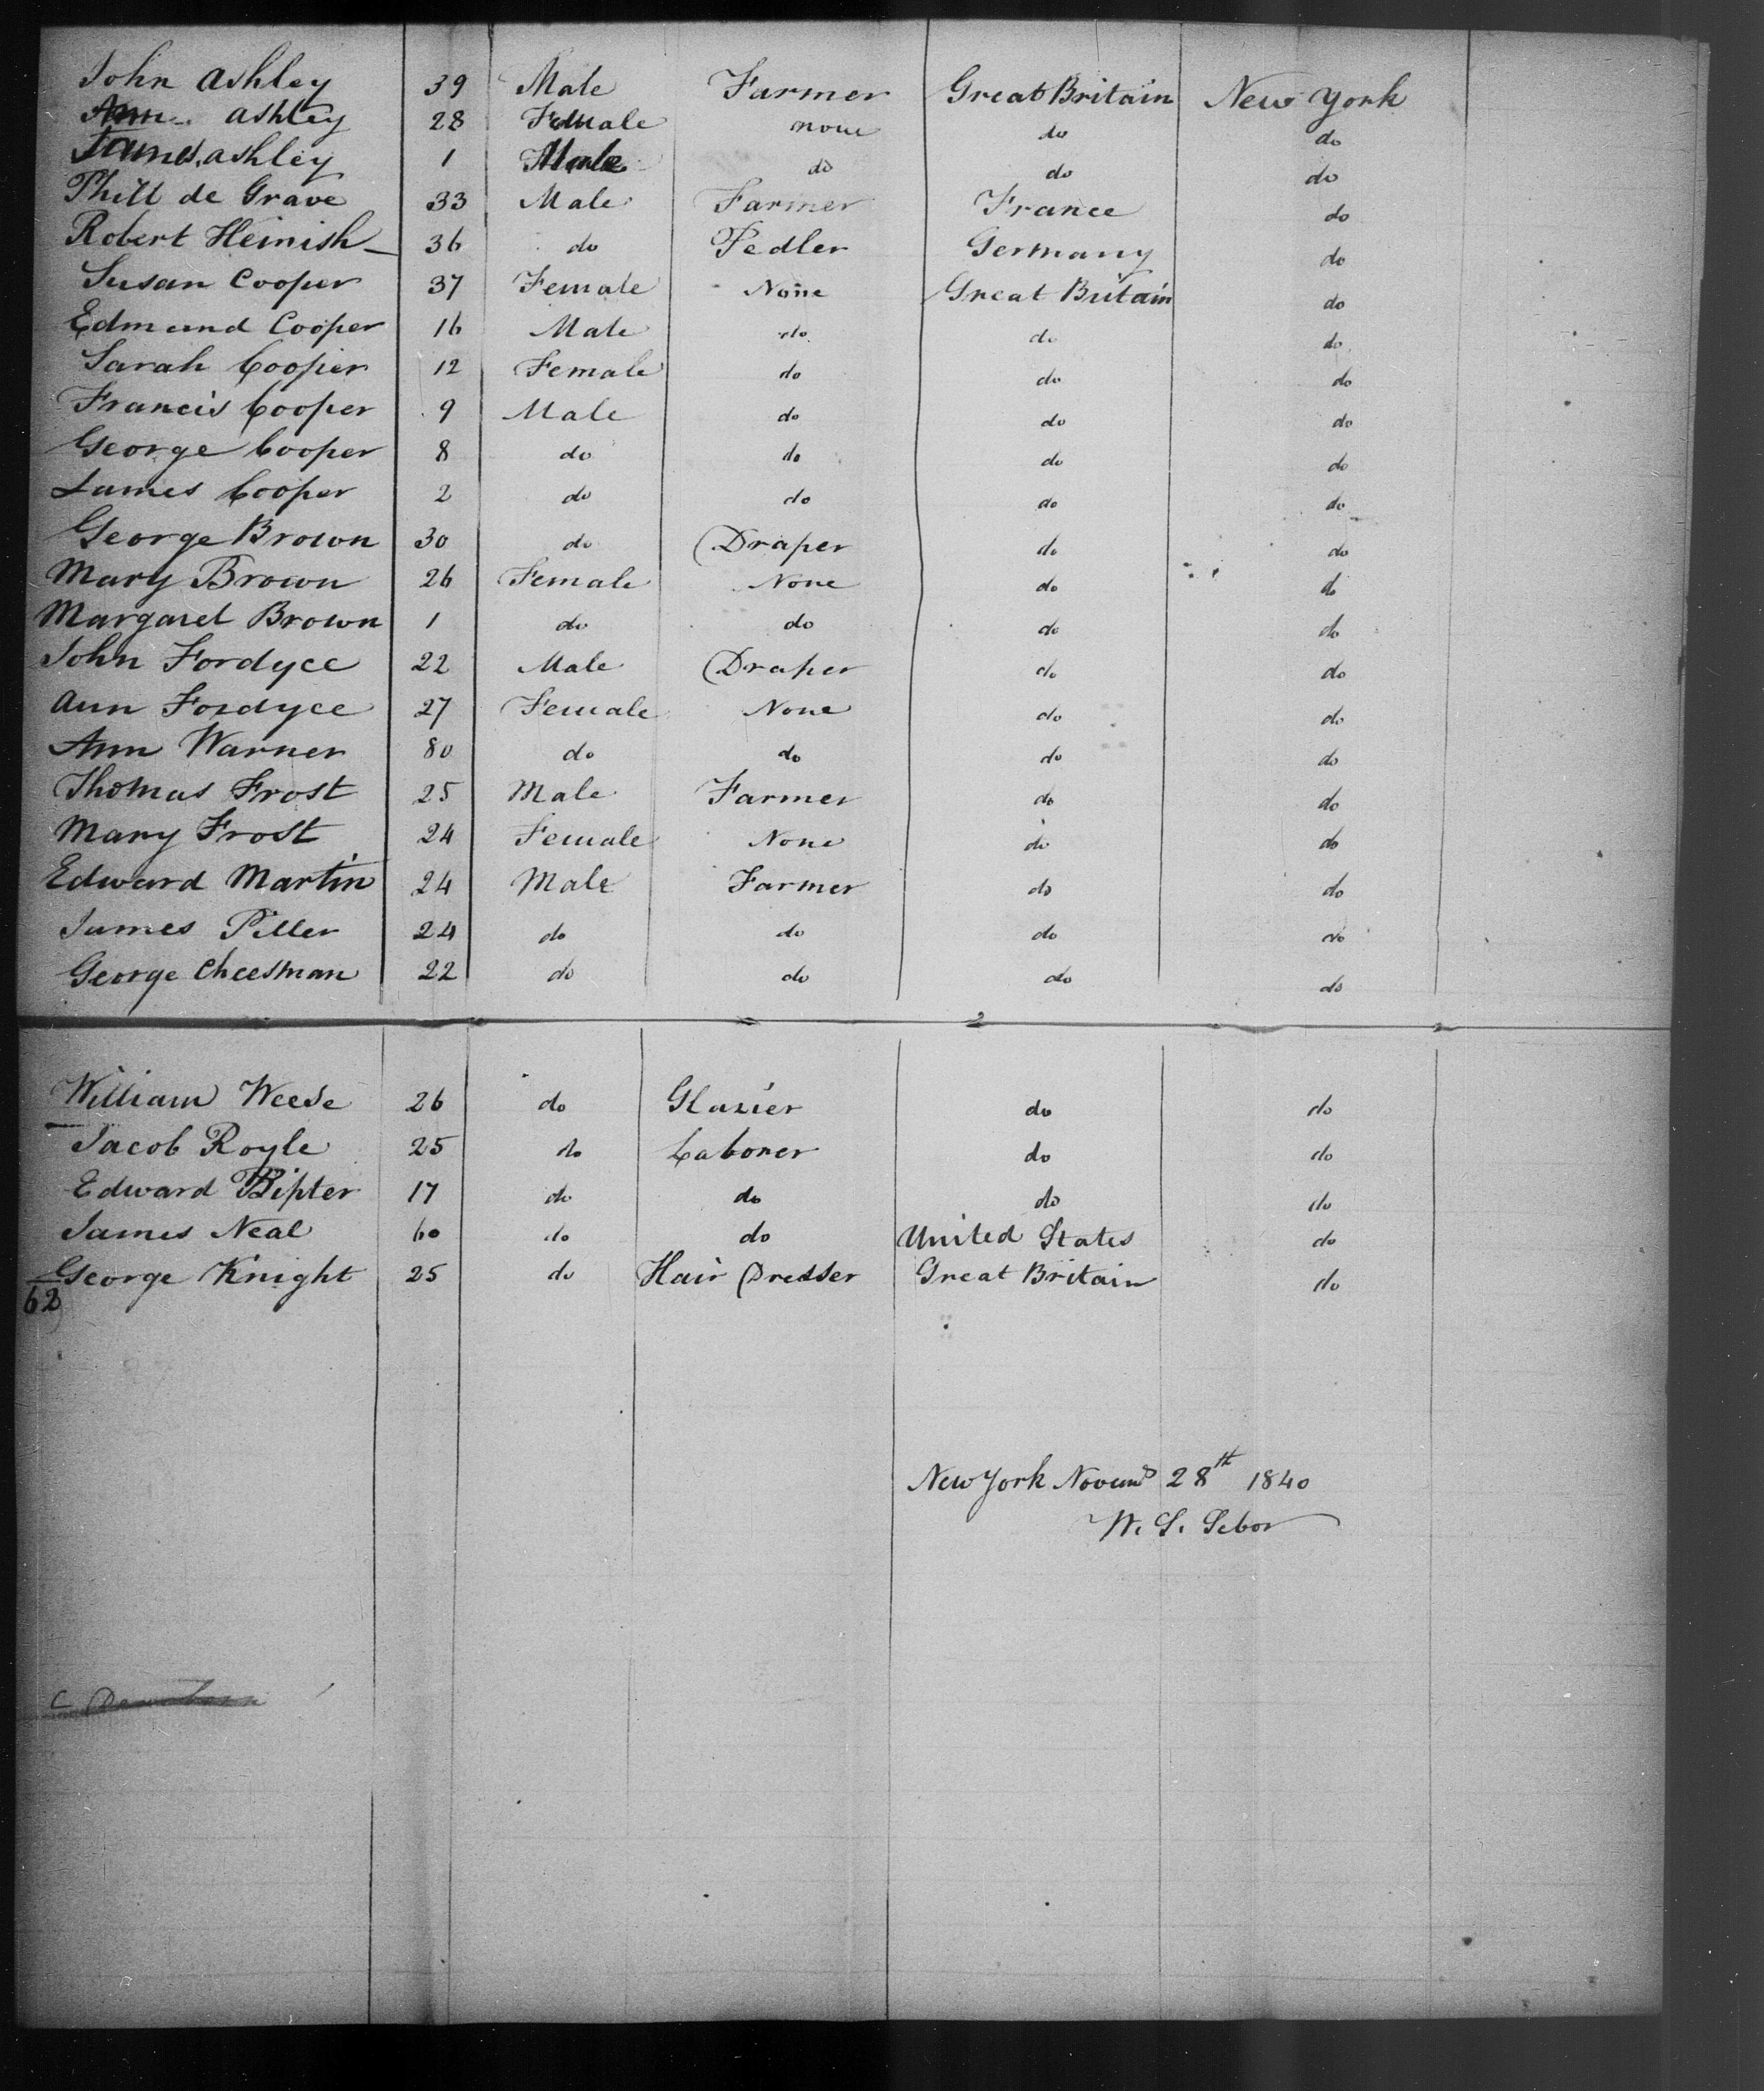 John Ashley 39 Male Farmer Great Britain New York
Ann Ashley 28 Female none do do
James Ashley 1 Male do do do
Phill de Grave 33 Male Farmer France do
Robert Heinish 36 do Pedler Germany do
Susan Cooper 37 Female None Great Britain do
Edmund Cooper 16 Male do do do
Sarah Cooper 12 Female do do do
Francis Cooper 9 Male do do do
George Cooper 8 do do do do
James Cooper 2 do do do do
George Brown 30 do Draper do do
Mary Brown 26 Female None do do
Margaret Brown 1 do do do do
John Fordyce 22 Male Draper do do
Ann Fordyce 27 Female None do do
Ann Warner 80 do do do do
Thomas Frost 25 Male Farmer do do
Mary Frost 24 Female None do do
Edward Martin 24 Male Farmer do do
James Piller 24 do do do do
George Cheesman 22 do do do do
William Weese 26 do Glazier do do
Jacob Royle 25 do Laborer do do
Edward 17 do do do do
James Neal 60 do do United States do
George Knight 25 do Hair Dresser Great Britain do
62
New York Novemb 28th 1840
W. S. Sebor